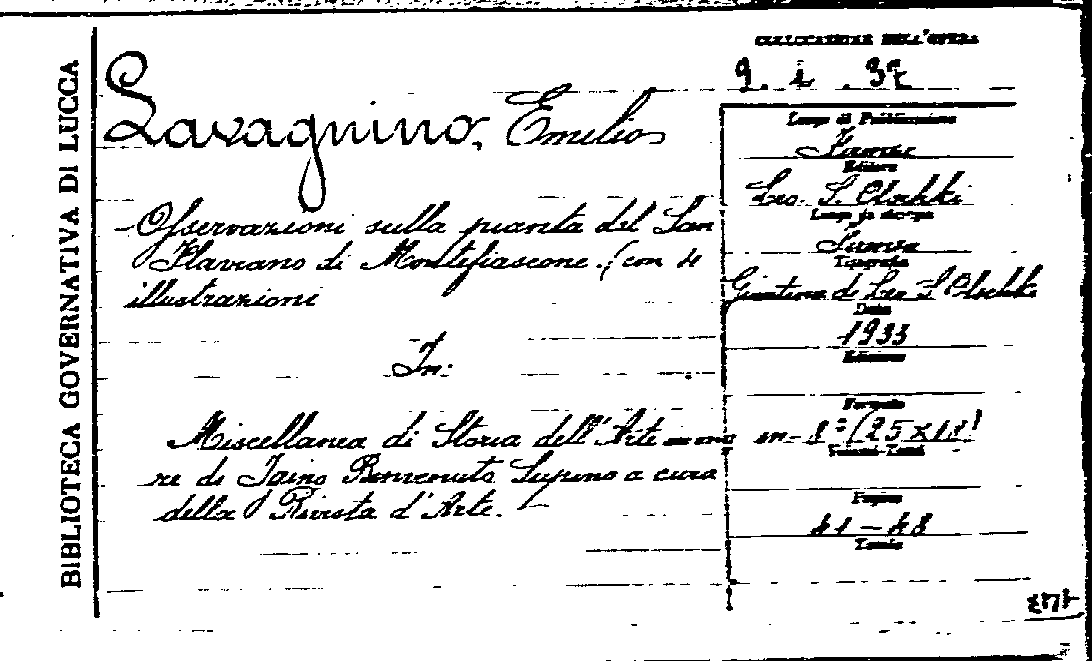 BIBLIOTECA GOVERNATIVA DI LUCCA
COLLOCAZIONE DELL'OPERA
9. i. 37
Lavagnino, Emilio
- Osservazioni sulla pianta del San
Flaviano di Montefiascone. (con 4
illustrazioni
In:
Miscellanea di Storia dell'Arte in ono
re di Igino Benvenuto Supino a cura
della Rivista d'Arte. -
Luogo di Pubblicazione
Firenze
Editore
Leo. S. Olschki
Luogo di stampa
Firenze
Tipografia
Giuntina di Leo S Olschki
Data
1933
Edizione
Formato
in-8° (25x18)
Volumi-Tomi
Pagine
41-48
Tavole